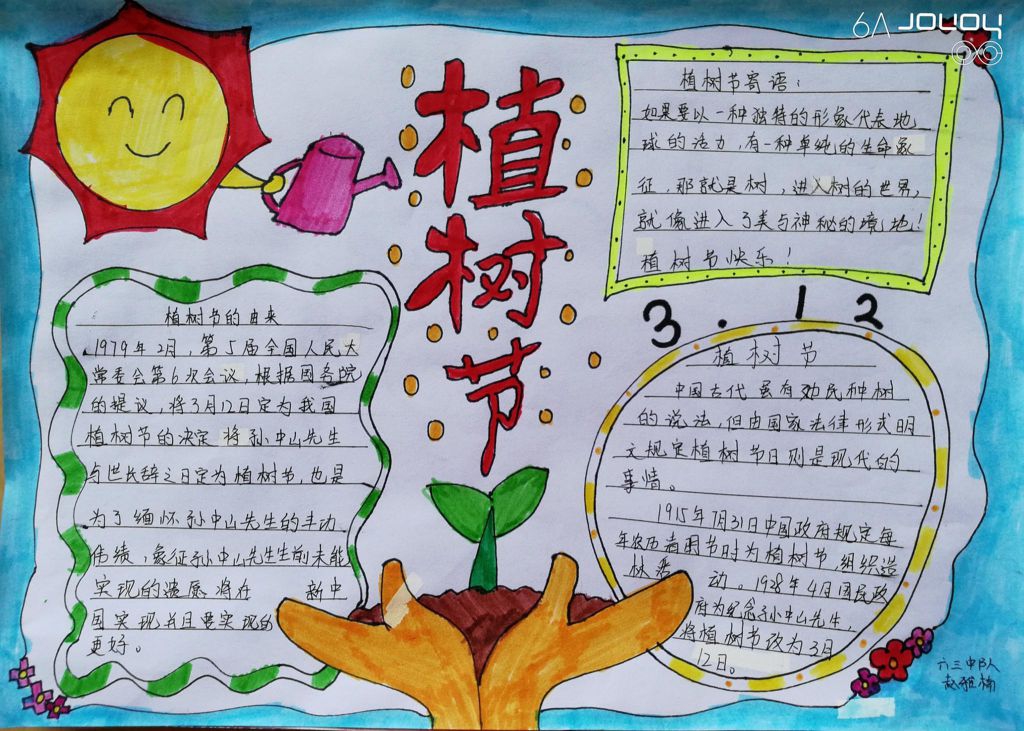 6A JOYOY
植树节
植树节寄语：
如果要以一种独特的形象代表地
球的活力，有一种单纯的生命象
征，那就是树，进入树的世界，
就像进入了类与神秘的境地！
植树节快乐！
3.12
植树节的由来
1979年2月，第5届全国人民大
常委会第6次会议，根据国务院
的提议，将3月12日定为我国
植树节的决定 将孙中山先生
与世长辞之日定为植树节，也是
为了缅怀孙中山先生的丰功
伟绩，象征孙中山先生生前未能
实现的遗愿将在 新中
国实现并且要实现的
更好。
植树节
中国古代虽有劝民种树
的说法，但由国家法律形式明
文规定植树节日则是现代的
事情。
1915年7月31日中国政府规定每
年农历清明节时为植树节，组织造
林 动。1928年4月国民政
府为纪念孙中山先生，
将植树节改为3月
12日。
六三中队
赵雅楠